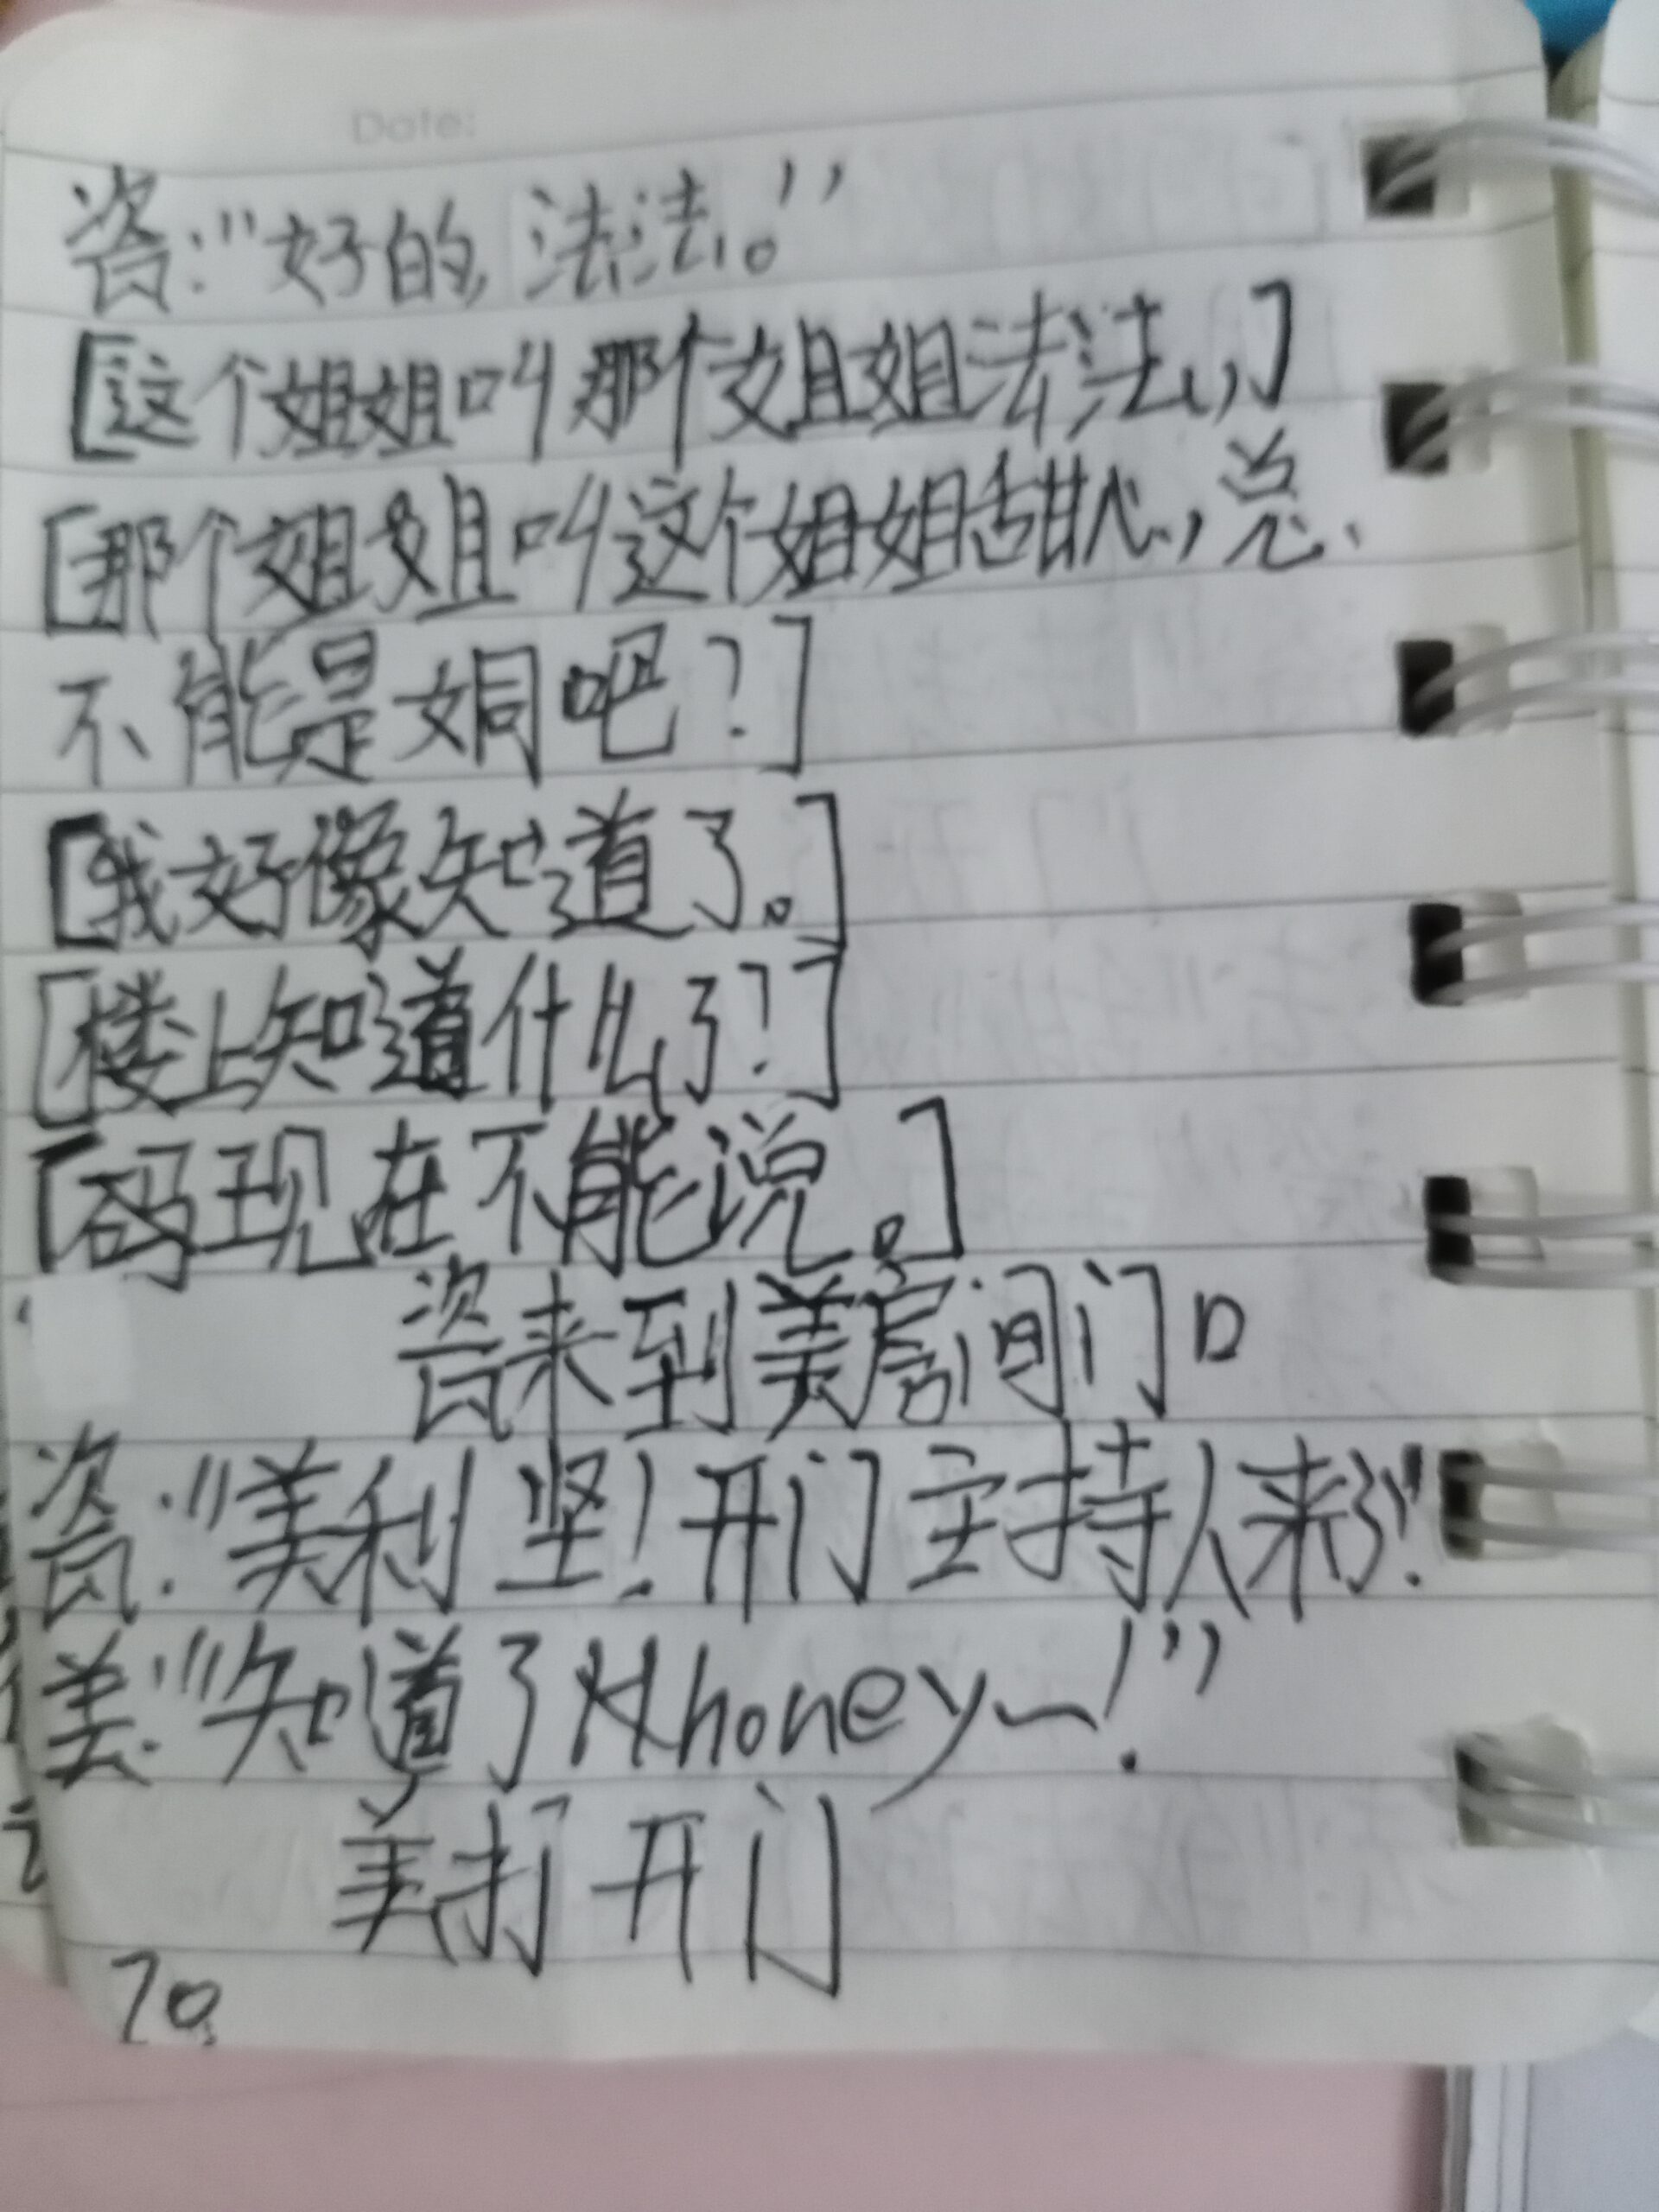 Date:
瓷:"好的,法法。"
[这个姐姐叫那个姐姐法法,]
[那个姐姐叫这个姐姐甜心,总
不能是姛吧?]
[我好像知道了。]
[楼上知道什么了?]
[码现在不能说。]
瓷来到美房间门口
瓷:"美利坚!开门主持人来了!"
美:"知道了honey~!"
美打开门
70